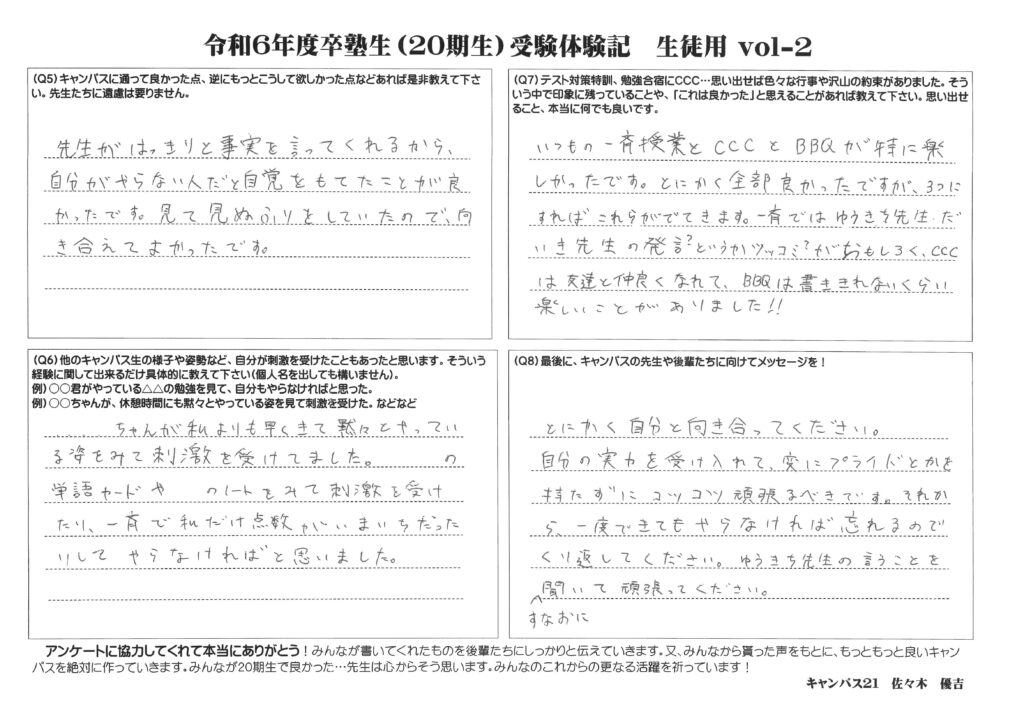 令和6年度卒塾生（20期生）受験体験記　生徒用 vol-2
（Q5）キャンパスに通って良かった点、逆にもっとこうして欲しかった点などあれば是非教えて下さ
い。先生たちに遠慮は要りません。
先生がはっきりと事実を言ってくれるから、
自分がやらない人だと自覚をもてたことが良
かったです。見て見ぬふりをしていたので、向
き合えてよかったです。
（Q6）他のキャンパス生の様子や姿勢など、自分が刺激を受けたこともあったと思います。そういう
経験に関して出来るだけ具体的に教えて下さい（個人名を出しても構いません）。
例）○○君がやっている△△の勉強を見て、自分もやらなければと思った。
例）○○ちゃんが、休憩時間にも黙々とやっている姿を見て刺激を受けた。などなど
ちゃんが私よりも早くきて黙々とやってい
る姿をみて刺激を受けてました。　　の
単語カードや　　のノートをみて刺激を受け
たり、一斉で私だけ点数がいまいちだった
りして やらなければと思いました。
（Q7）テスト対策特訓、勉強合宿にCCC…思い出せば色々な行事や沢山の約束がありました。そう
いう中で印象に残っていることや、「これは良かった」と思えることがあれば教えて下さい。思い出せ
ること、本当に何でも良いです。
いつもの一斉授業とCCCとBBQが特に楽
しかったです。とにかく全部良かったですが、3つに
すればこれらがでてきます。一斉ではゆうきち先生、だ
いき先生の発言?というかツッコミ?がおもしろく、CCC
は友達と仲良くなれて、BBQは書ききれないくらい
楽しいことがありました!!
（Q8）最後に、キャンパスの先生や後輩たちに向けてメッセージを！
とにかく自分と向き合ってください。
自分の実力を受け入れて、変にプライドとかを
持たずにコツコツ頑張るべきです。それか
ら、一度できてもやらなければ忘れるので
くり返してください。ゆうきち先生の言うことを
聞いて頑張ってください。
すなおに
アンケートに協力してくれて本当にありがとう！みんなが書いてくれたものを後輩たちにしっかりと伝えていきます。又、みんなから貰った声をもとに、もっともっと良いキャン
パスを絶対に作っていきます。みんなが20期生で良かった…先生は心からそう思います。みんなのこれからの更なる活躍を祈っています！
キャンパス21　佐々木　優吉